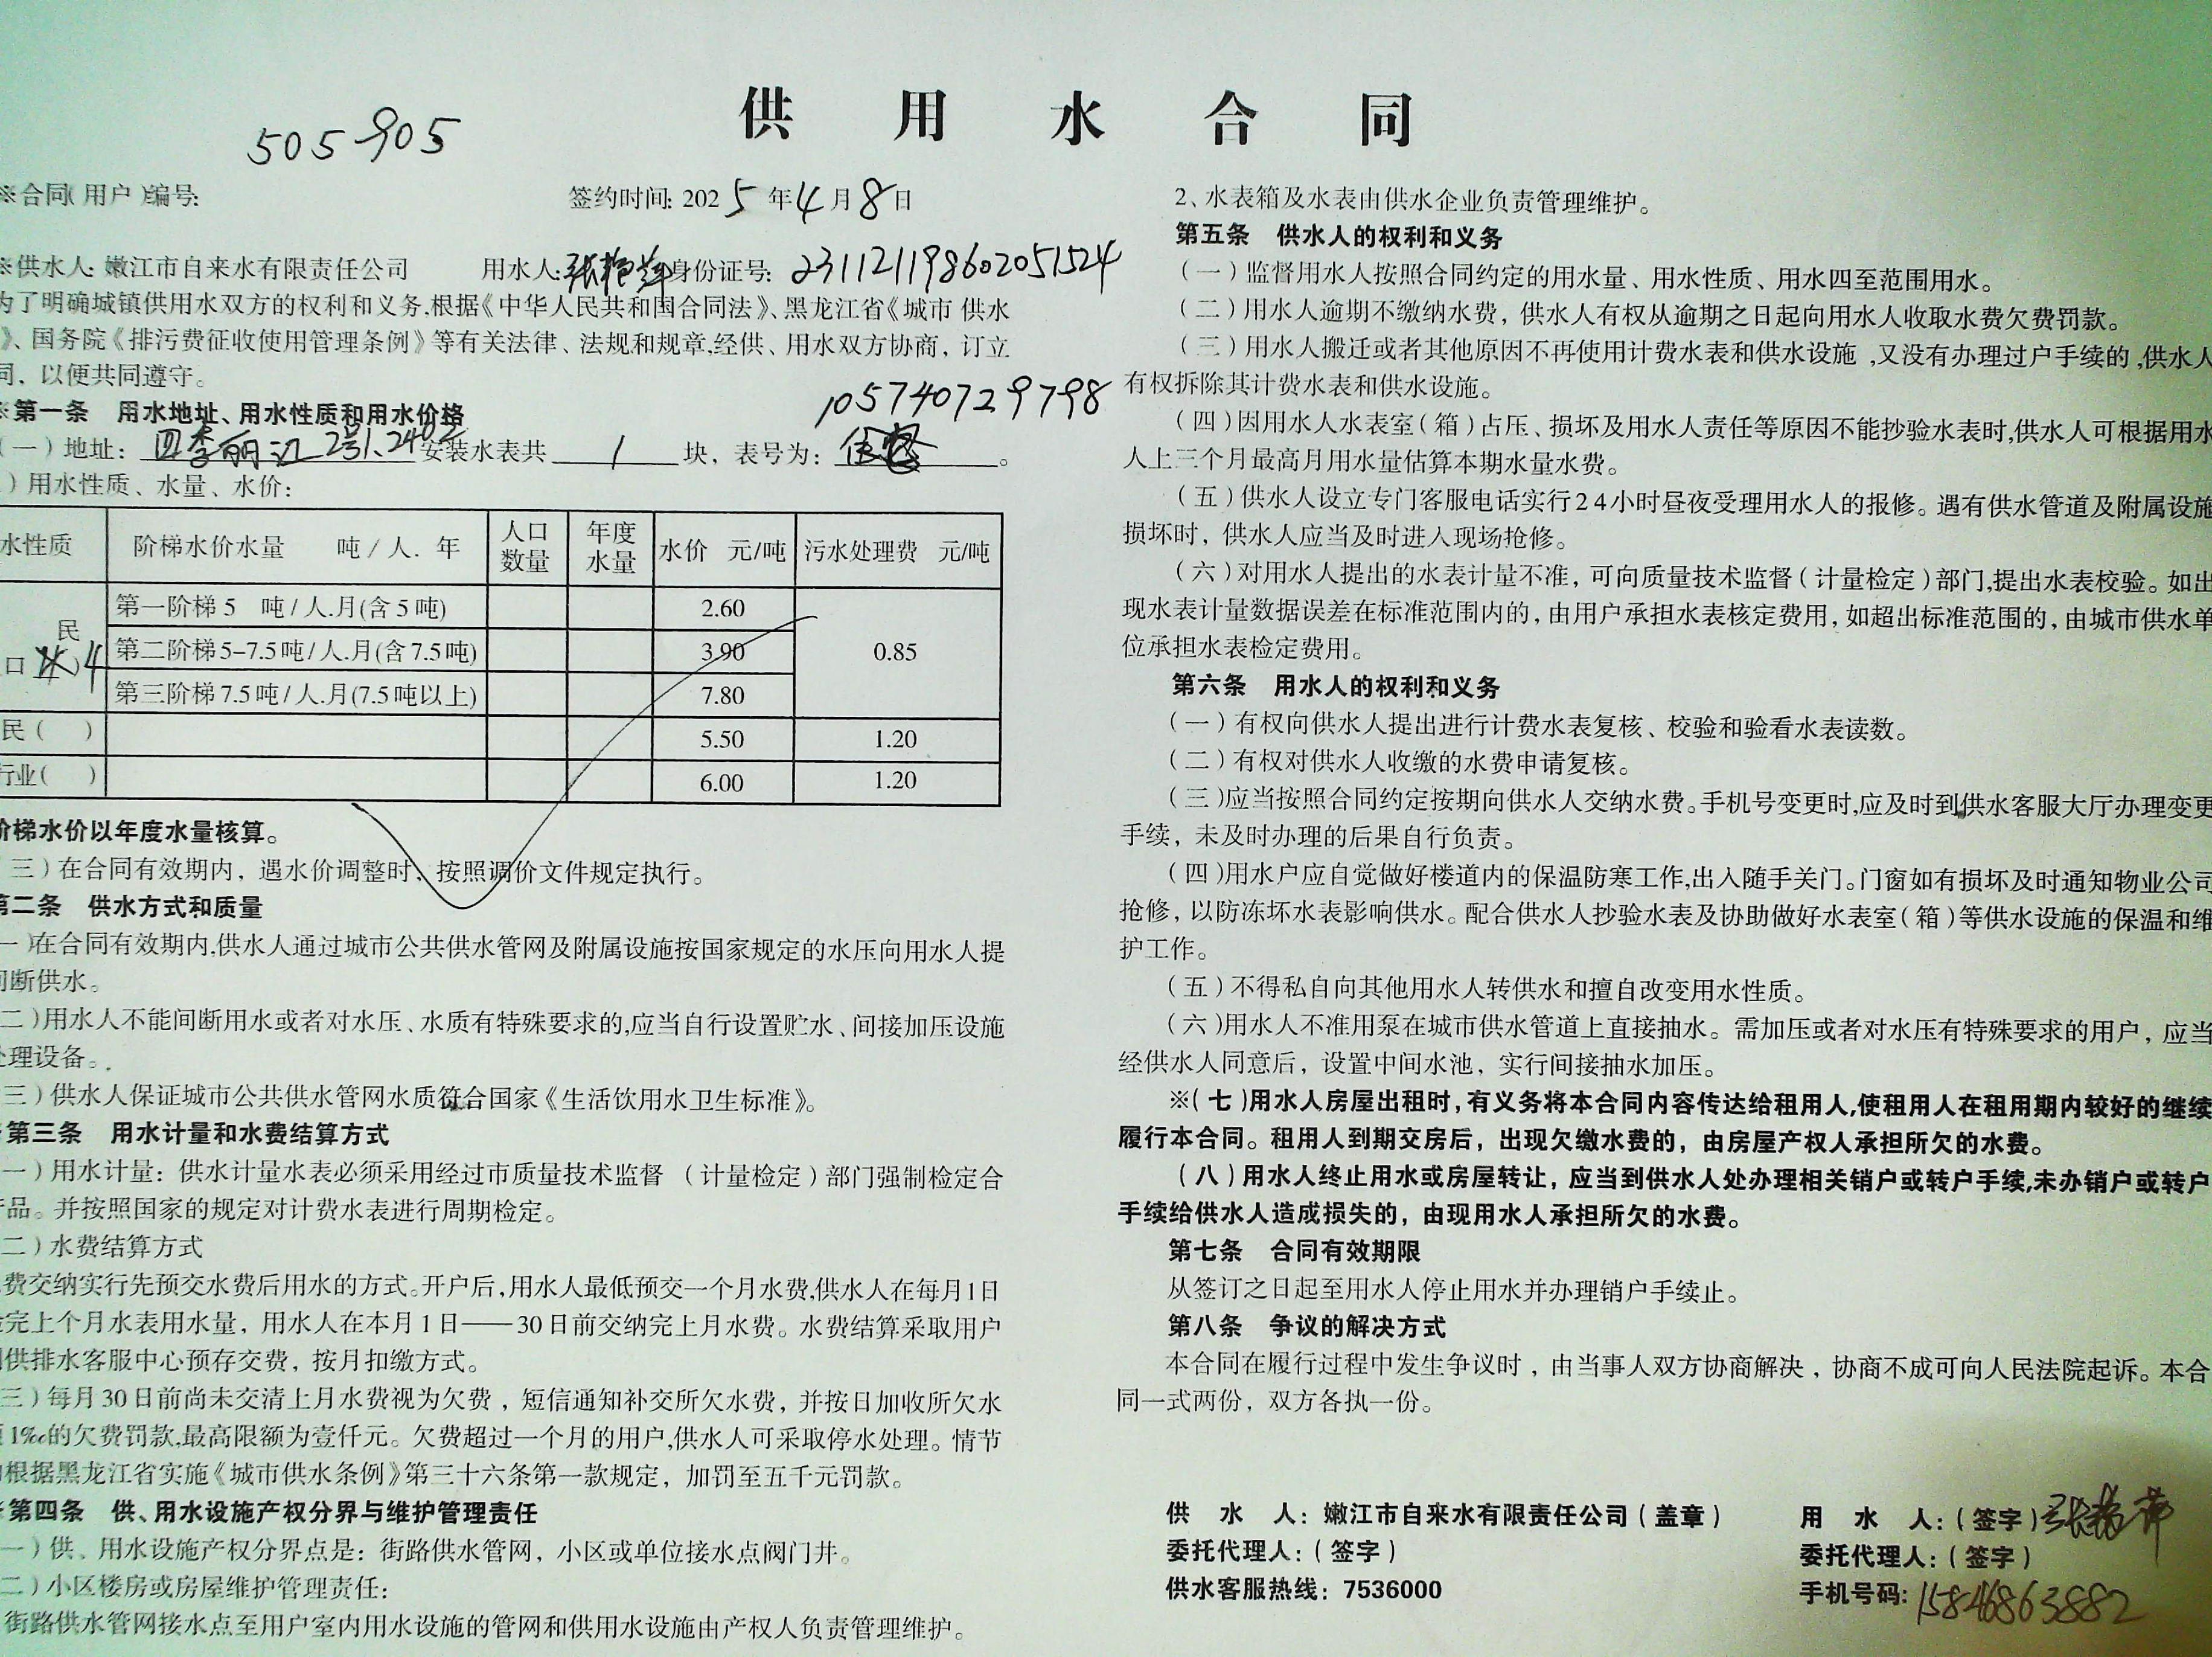 供用水合同
505905
※合同(用户)编号:
签约时间: 2025年4月8日
※供水人: 嫩江市自来水有限责任公司 用水人: 身份证号: 231121198602051524
为了明确城镇供用水双方的权利和义务,根据《中华人民共和国合同法》、黑龙江省《城市 供水
》、国务院《排污费征收使用管理条例》等有关法律、法规和规章,经供、用水双方协商,订立
同,以便共同遵守。
※第一条 用水地址、用水性质和用水价格
105740729798
(一)地址: 四季丽江2号1.2402 安装水表共 1 块,表号为: 。
)用水性质、水量、水价:
水性质 阶梯水价水量 吨/人. 年 人口数量 年度水量 水价 元/吨 污水处理费 元/吨
民
口 4
第一阶梯 5 吨/人.月(含5吨) 2.60
第二阶梯5-7.5吨/人.月(含7.5吨) 3.90 0.85
第三阶梯7.5吨/人.月(7.5吨以上) 7.80
民( ) 5.50 1.20
行业( ) 6.00 1.20
阶梯水价以年度水量核算。
三)在合同有效期内,遇水价调整时,按照调价文件规定执行。
第二条 供水方式和质量
一)在合同有效期内,供水人通过城市公共供水管网及附属设施按国家规定的水压向用水人提
间断供水。
二)用水人不能间断用水或者对水压、水质有特殊要求的,应当自行设置贮水、间接加压设施
处理设备。
三)供水人保证城市公共供水管网水质符合国家《生活饮用水卫生标准》。
※第三条 用水计量和水费结算方式
一)用水计量:供水计量水表必须采用经过市质量技术监督 (计量检定)部门强制检定合
产品。并按照国家的规定对计费水表进行周期检定。
二)水费结算方式
费交纳实行先预交水费后用水的方式。开户后,用水人最低预交一个月水费,供水人在每月1日
完上个月水表用水量,用水人在本月1日——30日前交纳完上月水费。水费结算采取用户
供排水客服中心预存交费,按月扣缴方式。
三)每月30日前尚未交清上月水费视为欠费,短信通知补交所欠水费,并按日加收所欠水
1‰的欠费罚款,最高限额为壹仟元。欠费超过一个月的用户,供水人可采取停水处理。情节
根据黑龙江省实施《城市供水条例》第三十六条第一款规定,加罚至五千元罚款。
※第四条 供、用水设施产权分界与维护管理责任
一)供、用水设施产权分界点是:街路供水管网,小区或单位接水点阀门井。
二)小区楼房或房屋维护管理责任:
街路供水管网接水点至用户室内用水设施的管网和供用水设施由产权人负责管理维护。
2、水表箱及水表由供水企业负责管理维护。
第五条 供水人的权利和义务
(一)监督用水人按照合同约定的用水量、用水性质、用水四至范围用水。
(二)用水人逾期不缴纳水费,供水人有权从逾期之日起向用水人收取水费欠费罚款。
(三)用水人搬迁或者其他原因不再使用计费水表和供水设施,又没有办理过户手续的,供水人
有权拆除其计费水表和供水设施。
(四)因用水人水表室(箱)占压、损坏及用水人责任等原因不能抄验水表时,供水人可根据用水
人上三个月最高月用水量估算本期水量水费。
(五)供水人设立专门客服电话实行24小时昼夜受理用水人的报修。遇有供水管道及附属设施
损坏时,供水人应当及时进入现场抢修。
(六)对用水人提出的水表计量不准,可向质量技术监督(计量检定)部门,提出水表校验。如出
现水表计量数据误差在标准范围内的,由用户承担水表核定费用,如超出标准范围的,由城市供水单
位承担水表检定费用。
第六条 用水人的权利和义务
(一)有权向供水人提出进行计费水表复核、校验和验看水表读数。
(二)有权对供水人收缴的水费申请复核。
(三)应当按照合同约定按期向供水人交纳水费。手机号变更时,应及时到供水客服大厅办理变更
手续,未及时办理的后果自行负责。
(四)用水户应自觉做好楼道内的保温防寒工作,出入随手关门。门窗如有损坏及时通知物业公司
抢修,以防冻坏水表影响供水。配合供水人抄验水表及协助做好水表室(箱)等供水设施的保温和维
护工作。
(五)不得私自向其他用水人转供水和擅自改变用水性质。
(六)用水人不准用泵在城市供水管道上直接抽水。需加压或者对水压有特殊要求的用户,应当
经供水人同意后,设置中间水池,实行间接抽水加压。
※(七)用水人房屋出租时,有义务将本合同内容传达给租用人,使租用人在租用期内较好的继续
履行本合同。租用人到期交房后,出现欠缴水费的,由房屋产权人承担所欠的水费。
(八)用水人终止用水或房屋转让,应当到供水人处办理相关销户或转户手续,未办销户或转户
手续给供水人造成损失的,由现用水人承担所欠的水费。
第七条 合同有效期限
从签订之日起至用水人停止用水并办理销户手续止。
第八条 争议的解决方式
本合同在履行过程中发生争议时,由当事人双方协商解决,协商不成可向人民法院起诉。本合
同一式两份,双方各执一份。
供 水 人:嫩江市自来水有限责任公司(盖章) 用 水 人:(签字)
委托代理人:(签字) 委托代理人:(签字)
供水客服热线:7536000 手机号码:15846863882